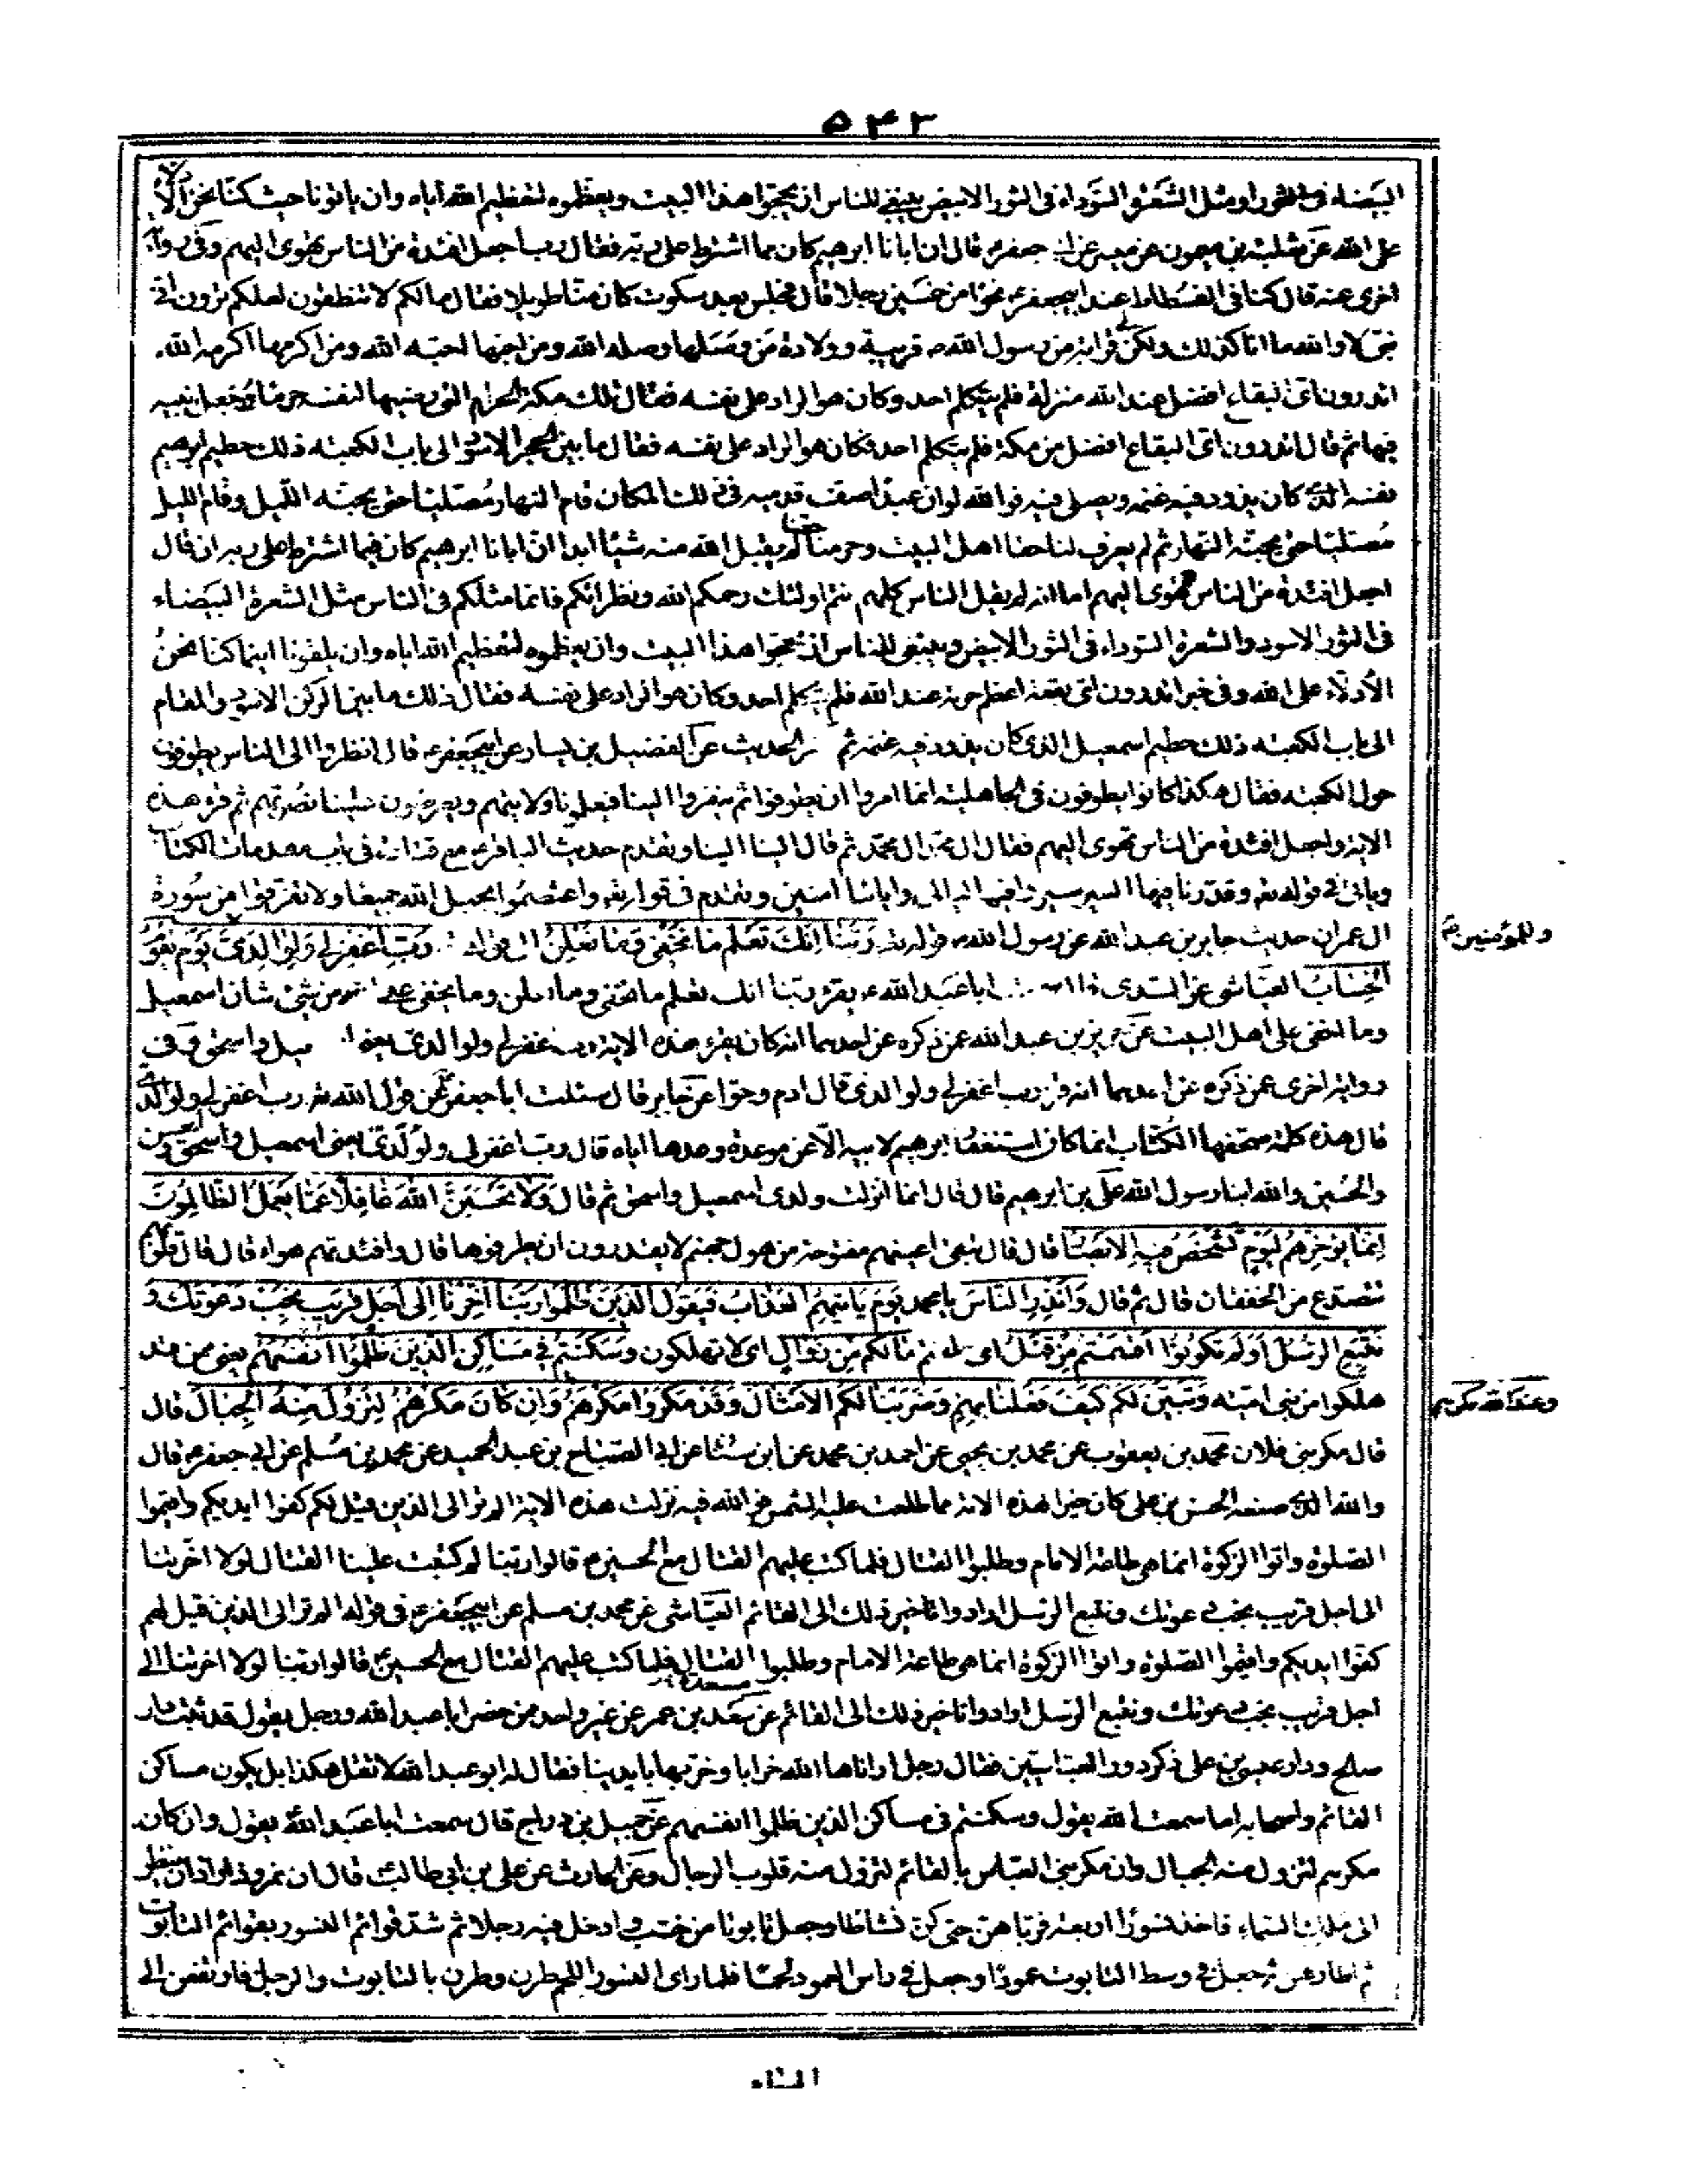 ٥٤٢
البيضاء فى الثور او مثل الشعرة السوداء فى الثور الابيض ينبغى للناس ان يحجوا هذا البيت ويعظموه لتعظيم الله اياه وان ياتونا حيث كنا نحن الادلاء
على الله عن ثعلبة بن ميمون عن ميسر عن ابى جعفر ع قال ان ابانا ابرهيم كان مما اشترط على ربه فقال رب اجعل افئدة من الناس تهوى اليهم وفى رواية
اخرى عنه قال كنا فى الفسطاط عند ابيجعفر ع نحوا من خمسين رجلا قال فجلس بعد سكوت كان منا طويلا فقال ما لكم لا تنطقون لعلكم ترون انى
نبى لا والله ما انا كذلك ولكن لى قرابة من رسول الله ص قريبة وولادة من وصلها وصله الله ومن احبها احبه الله ومن اكرمها اكرمه الله
اتدرون اى البقاع افضل عند الله منزلة فلم يتكلم احد وكان هو الراد على نفسه فقال تلك مكة الحرام التى رضيها لنفسه حرما وجعل بيته
فيها ثم قال اتدرون اى البقاع افضل من مكة فلم يتكلم احد فكان هو الراد على نفسه فقال ما بين الحجر الاسود الى باب الكعبة ذلك حطيم ابرهيم
نفسه الذى كان يذود فيه غنمه ويصلى فيه فوالله لو ان عبدا صف قدميه فى ذلك المكان قام النهار مصليا حتى يجنه الليل وقام الليل
مصليا حتى يجنه النهار ثم لم يعرف لنا حقنا اهل البيت وحرمتنا لم يقبل الله منه شيئا ابدا ان ابانا ابرهيم كان فيما اشترط على ربه ان قال
اجعل افئدة من الناس تهوى اليهم اما انه لم يقل الناس كلهم انتم اولئك رحمكم الله ونظراؤكم فانما مثلكم فى الناس مثل الشعرة البيضاء
فى الثور الاسود والشعرة السوداء فى الثور الابيض وينبغى للناس ان يحجوا هذا البيت وان يعظموه لتعظيم الله اياه وان يلقونا اينما كنا نحن
الأدلاء على الله وفى خبر اتدرون اى بقعة اعظم حرمة عند الله فلم يتكلم احد وكان هو الراد على نفسه فقال ذلك ما بين الركن الاسود والمقام
الى باب الكعبة ذلك حطيم اسمعيل الذى كان يذود فيه غنمه ثم الحديث عن الفضيل بن يسار عن ابيجعفر ع قال انظروا الى الناس يطوفون
حول الكعبة فقال هكذا كانوا يطوفون فى الجاهلية انما امروا ان يطوفوا ثم ينفروا الينا فيعلمونا ولايتهم ويعرضون علينا نصرتهم ثم قرء هذه
الاية واجعل افئدة من الناس تهوى اليهم فقال ال محمد ال محمد ثم قال الينا الينا وتقدم حديث الباقر ع مع قتادة فى باب مقدمات الكتاب
وياتى فى قوله تع وقدرنا فيها السير سيروا فيها ليالى واياما امنين وتقدم فى قوله تع واعتصموا بحبل الله جميعا ولا تفرقوا من سورة
ال عمران حديث جابر بن عبد الله عن رسول الله ص قوله تع ربنا انك تعلم ما نخفى وما نعلن الى قوله رب اغفر لى ولوالدى يوم يقوم
وللمؤمنين
الحساب العياشى عن السدى قال سمعت ابا عبد الله ع يقرء ربنا انك تعلم ما نخفى وما نعلن وما يخفى على الله من شئ شان اسمعيل
وما اخفى على اهل البيت عن حريز بن عبد الله عمن ذكره عن احدهما انه كان يقرء هذه الاية رب اغفر لى ولولدى يعنى اسمعيل واسحق وفى
رواية اخرى عمن ذكره عن احدهما انه قرء رب اغفر لى ولوالدى قال ادم وحوا عن جابر قال سئلت ابا جعفر ع عن قول الله تع رب اغفر لى ولوالدى
قال هذه كلمة صحفها الكتاب انما كان استغفار ابرهيم لابيه الا عن موعدة وعدها اياه قال رب اغفر لى ولولدى يعنى اسمعيل واسحق والحسن
والحسين والله ابنا رسول الله على بن ابرهيم قال قال انما انزلت ولدى اسمعيل واسحق ثم قال ولا تحسبن الله غافلا عما يعمل الظالمون
انما يؤخرهم ليوم تشخص فيه الابصار قال قال تبقى اعينهم مفتوحة من هول جهنم لا يقدرون ان يطرفوها قال وافئدتهم هواء قال قال قلوبهم
تتصدع من الخفقان قال ثم قال وانذر الناس يا محمد يوم ياتيهم العذاب فيقول الذين ظلموا ربنا اخرنا الى اجل قريب نجب دعوتك و
نتبع الرسل اولم تكونوا اقسمتم من قبل اى حلفتم ما لكم من زوال اى لا تهلكون وسكنتم فى مساكن الذين ظلموا انفسهم يعنى من قد
هلكوا من بنى امية وتبين لكم كيف فعلنا بهم وضربنا لكم الامثال وقد مكروا مكرهم وان كان مكرهم لتزول منه الجبال قال
وعند الله مكرهم
قال مكر بنى فلان محمد بن يعقوب عن محمد بن يحيى عن احمد بن محمد عن ابن سنان عن ابى الصباح بن عبد الحميد عن محمد بن مسلم عن ابى جعفر ع قال
والله الذى صنعه الحسن بن على كان خيرا لهذه الامة مما طلعت عليه الشمس والله فيه نزلت هذه الاية الم تر الى الذين قيل لهم كفوا ايديكم واقيموا
الصلوة واتوا الزكوة انما هى طاعة الامام وطلبوا القتال فلما كتب عليهم القتال مع الحسين ع قالوا ربنا لم كتبت علينا القتال لولا اخرتنا
الى اجل قريب نجب دعوتك ونتبع الرسل ارادوا تاخير ذلك الى القائم العياشى عن محمد بن مسلم عن ابيجعفر ع فى قوله الم تر الى الذين قيل لهم
كفوا ايديكم واقيموا الصلوة واتوا الزكوة انما هى طاعة الامام وطلبوا القتال فلما كتب عليهم القتال مع الحسين ع قالوا ربنا لولا اخرتنا الى
اجل قريب نجب دعوتك ونتبع الرسل ارادوا تاخير ذلك الى القائم عن سعد بن عمر عن غير واحد ممن حضر ابا عبد الله ورجل يقول قد ثبت دار
صلح ودار عيسى بن على ذكر دور العباسيين فقال رجل اراناها الله خرابا وخربها بايدينا فقال له ابو عبد الله لا تقل هكذا بل يكون مساكن
القائم واصحابه اما سمعت الله يقول وسكنتم فى مساكن الذين ظلموا انفسهم عن جميل بن دراج قال سمعت ابا عبد الله يقول وان كان
مكرهم لتزول منه الجبال وان مكر بنى العباس بالقائم لتزول منه قلوب الرجال وعن الحارث عن على بن ابى طالب قال ان نمرود اراد ان ينظر
الى ملك السماء فاخذ نسورا اربعة فرباهن حتى كن نشاطا وجعل تابوتا من خشب وادخل فيه رجلا ثم شد قوائم النسور بقوائم التابوت
ثم اطارهن ثم جعل فى وسط التابوت عمودا وجعل فى راس العمود لحما فلما راى النسور اللحم طرن وطرن بالتابوت والرجل فارتفعن الى
السماء